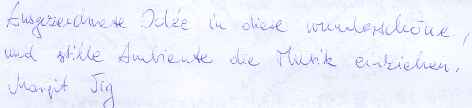 Ausgezeichnete Idée in diese wunderschöne,
und stille Ambiente die Musik einziehen.
Margit